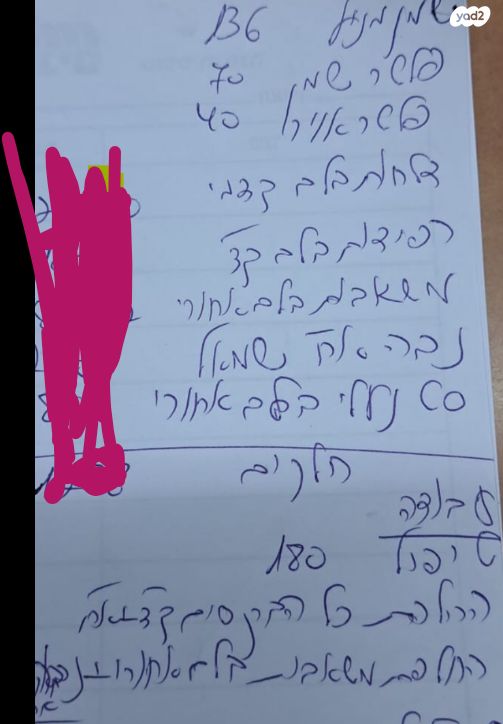 yad2
שמן מנוע 136
פלטר שמן 70
פלטר אוויר 40
צלחות בלם קדמי
רפידות בלם קד'
משאבות בלם אחורי
נבה אח' שמאל
סט נעלי בלם אחורי
חלקים
עבודה
טיפול 180
החלפת כל הברקסים קד' אח'
החלפת משאבות בלם אחורי